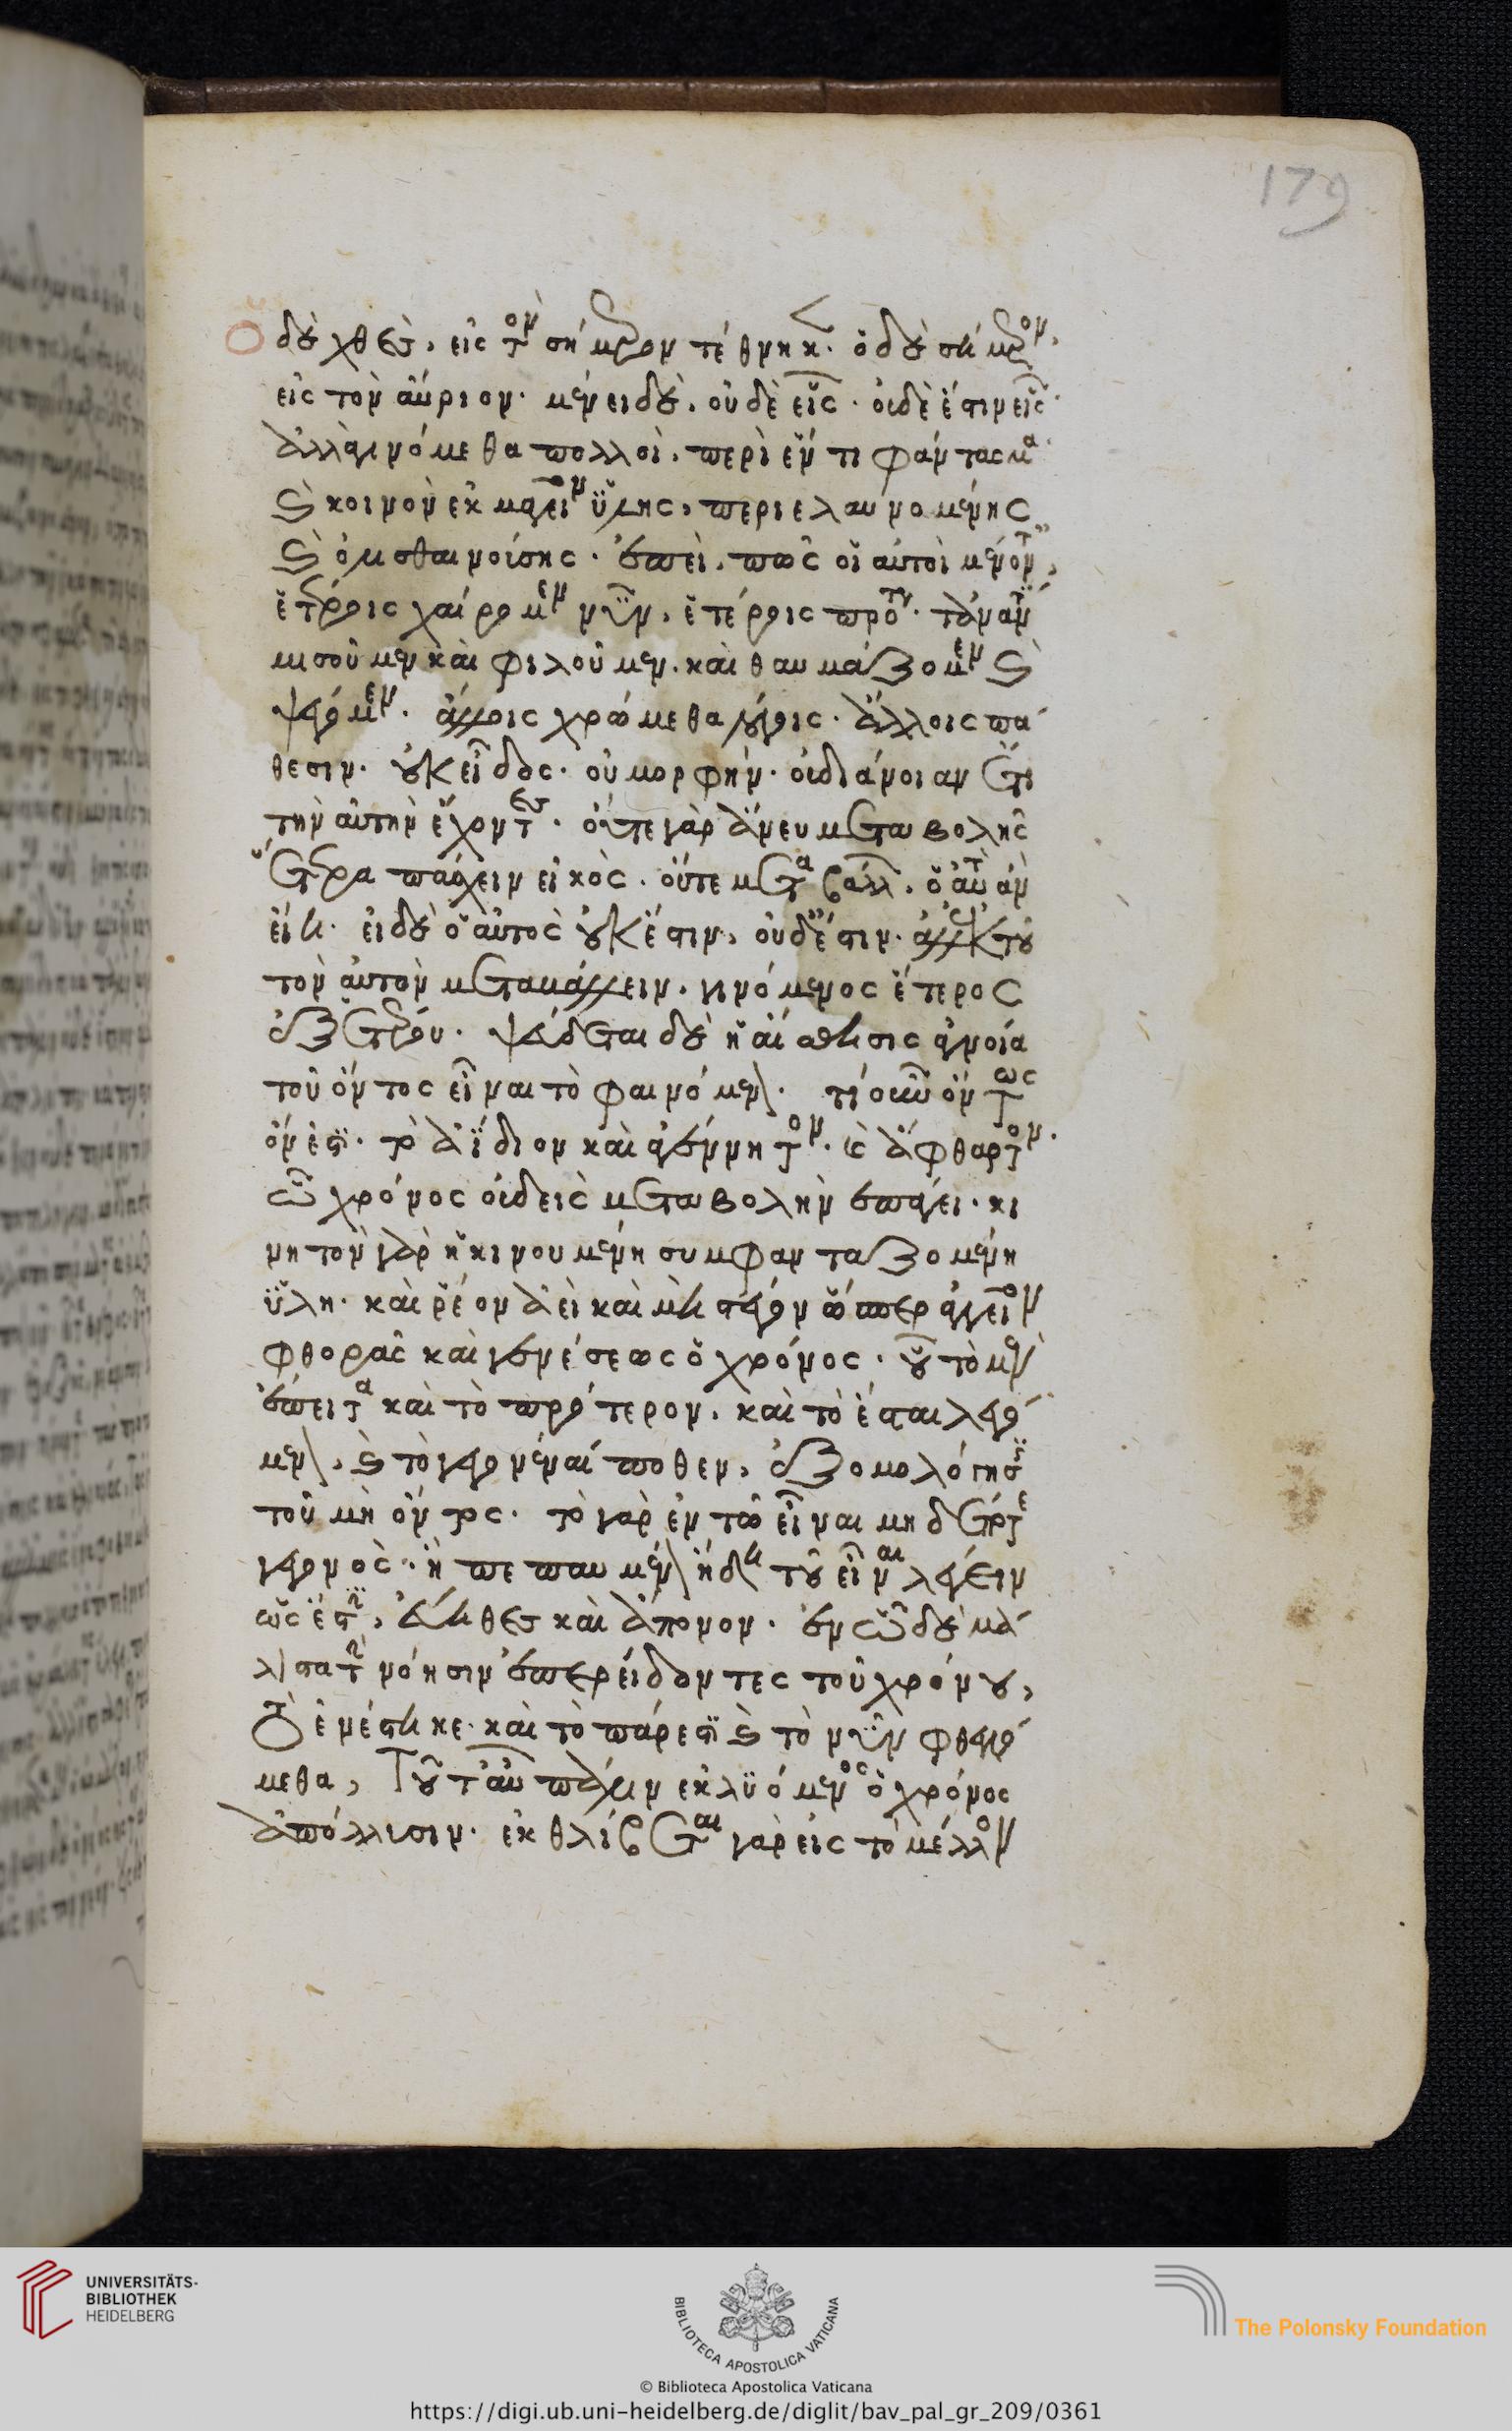 ὁ δὲ χθὲς, εἰς τὸν σήμερον τέθνηκεν· ὁ δὲ σήμερον,
εἰς τὸν αὔριον· μένει δὲ, οὐδὲ εἷς· οὐδὲ ἔστιν εἷς·
ἀλλὰ γινόμεθα πολλοὶ, περὶ ἕν τι φάντασμα·
καὶ κοινὸν ἐκμαγεῖον ὕλης, περιελαυνομένης
καὶ ὀλισθαινούσης· ἐπεὶ, πῶς οἱ αὐτοὶ μένοντες,
ἑτέροις χαίρομεν νῦν, ἑτέροις πρότερον· τἀναντία
μισοῦμεν καὶ φιλοῦμεν· καὶ θαυμάζομεν καὶ
ψέγομεν· ἄλλοις χρώμεθα λόγοις· ἄλλοις πά
θεσιν· οὐκ εἶδος· οὐ μορφήν· οὐ διάνοιαν ἔτι
τὴν αὐτὴν ἔχοντες· οὔτε γὰρ ἄνευ μεταβολῆς
ἕτερα πάσχειν εἰκὸς· οὔτε μεταβάλλων, ὁ αὐτὸς ἂν
εἴη· εἰ δὲ ὁ αὐτὸς οὐκ ἔστιν, οὐδέ ἐστιν· ἀλλ' ἐκ τοῦ
τὸν αὐτὸν μεταβάλλειν· γινόμενος ἕτερος
ἐξ ἑτέρου· ψεύδεται δὲ ἡ αἴσθησις ἀγνοίᾳ
τοῦ ὄντος εἶναι τὸ φαινόμενον· τί οὖν ὄντως
ὄν ἐστι· τὸ ἀΐδιον καὶ ἀγέννητον· καὶ ἄφθαρτον·
ᾧ χρόνος οὐδεὶς μεταβολὴν ἐπάγει· κι
νητὸν γὰρ ἡ κινουμένη συμφανταζομένη
ὕλη· καὶ ῥέον ἀεὶ καὶ μὴ στέγον ὥσπερ ἀγγεῖον
φθορᾶς καὶ γενέσεως ὁ χρόνος· οὗ τὸ μὲν
ἔπειτα καὶ τὸ πρότερον, καὶ τὸ ἔσται λεγό
μενον, καὶ τὸ γεγονέναι πόθεν, ἐξομολόγησίς ἐστι
τοῦ μὴ ὄντος· τὸ γὰρ ἐν τῷ εἶναι μηδέποτε
γεγονὸς· ἢ πεπαυμένον ἤδη τοῦ εἶναι λέγειν
ὡς ἔστιν, εὔηθες καὶ ἄτοπον· ἐν ᾧ δὲ μά
λιστα τὴν νόησιν ἐπερείδοντες τοῦ χρόνου,
τὸ ἐνέστηκε· καὶ τὸ πάρεστι καὶ τὸ νῦν φθεγγό
μεθα, τοῦτ' αὖ πάλιν ἐκλυόμενος ὁ χρόνος
ἀπόλλυσιν· ἐκθλίβεται γὰρ εἰς τὸ μέλλον
179
UNIVERSITÄTS-
BIBLIOTHEK
HEIDELBERG
BIBLIOTECA APOSTOLICA VATICANA
The Polonsky Foundation
© Biblioteca Apostolica Vaticana
https://digi.ub.uni-heidelberg.de/diglit/bav_pal_gr_209/0361